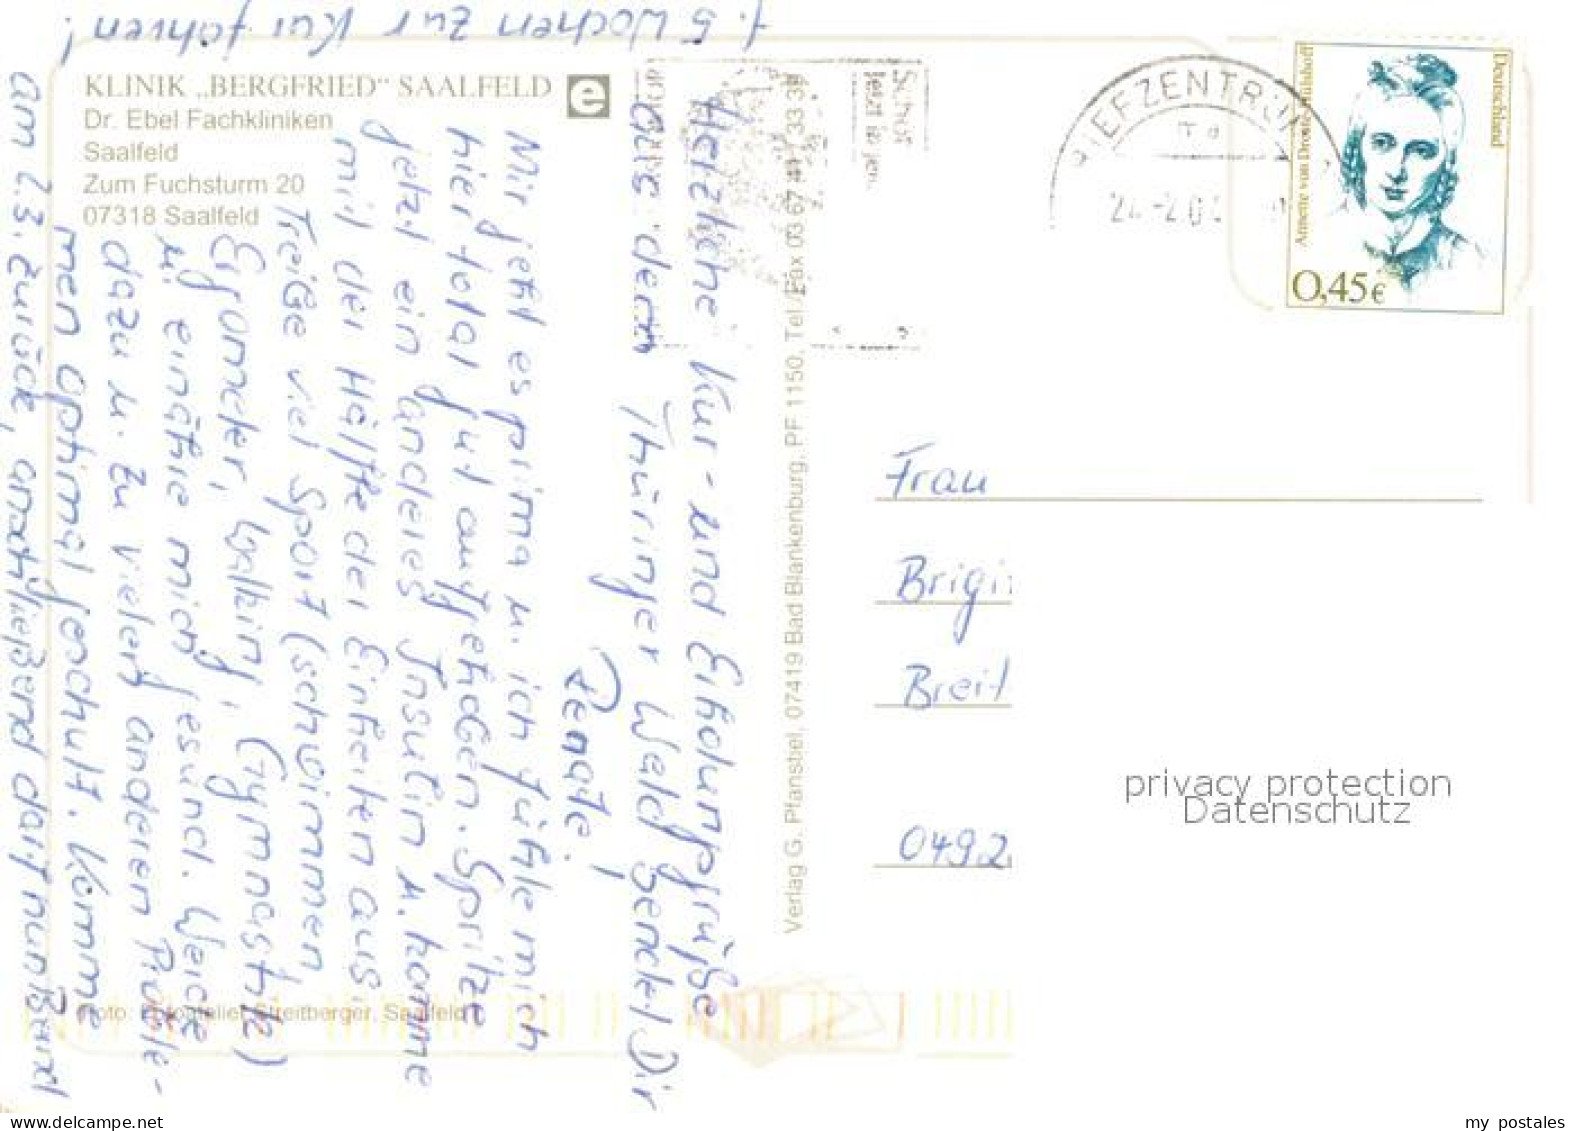 KLINIK „BERGFRIED" SAALFELD
Dr. Ebel Fachkliniken
Saalfeld
Zum Fuchsturm 20
07318 Saalfeld
Herzliche Kur- und Erholungsgrüße
aus dem Thüringer Wald sendet Dir
Renate.
Mir geht es prima u. ich fühle mich
hier total gut aufgehoben. Spritze
jetzt ein anderes Insulin u. komme
mit der Hälfte der Einheiten aus.
Treibe viel Sport (schwimmen,
Ergometer, Walking, Gymnastik)
u. ernähre mich gesund. Werde
dazu u. zu vielen anderen Proble-
men optimal geschult. Komme
am 2.3. zurück, anschließend darf nun Bernd
f. 5 Wochen zur Kur fahren!
Foto: Fotoatelier Streitberger, Saalfeld
Verlag G. Pfanstiel, 07419 Bad Blankenburg, PF 1150, Tel./Fax 03 67 41 / 33 39
BRIEFZENTRUM
Deutschland
Annette von Droste-Hülshoff
0,45€
Frau
Brigi
Breit
0492
privacy protection
Datenschutz
my postales